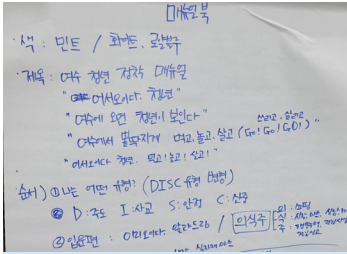 매뉴얼북
· 색 : 민트 / 화이트, 로얄블루
· 제목 : 여수 청년 정착 매뉴얼
" 어서오이다. 청년"
" 여수에 오면 청년이 보인다"
" 여수에서 뽈딱지게 먹고, 놀고, 살고 (Go! Go! GO!) "
"어서오이다 청년. 먹고! 놀고! 살고!"
순서) ① 나는 어떤 유형? (DISC 유형 병행)
② D : 주도 I : 사교 S : 안정 C : 신중
③ 입문편 : 이미오이다. 알랴드랑 / 의식주
의 : 쇼핑
식 :
주 :